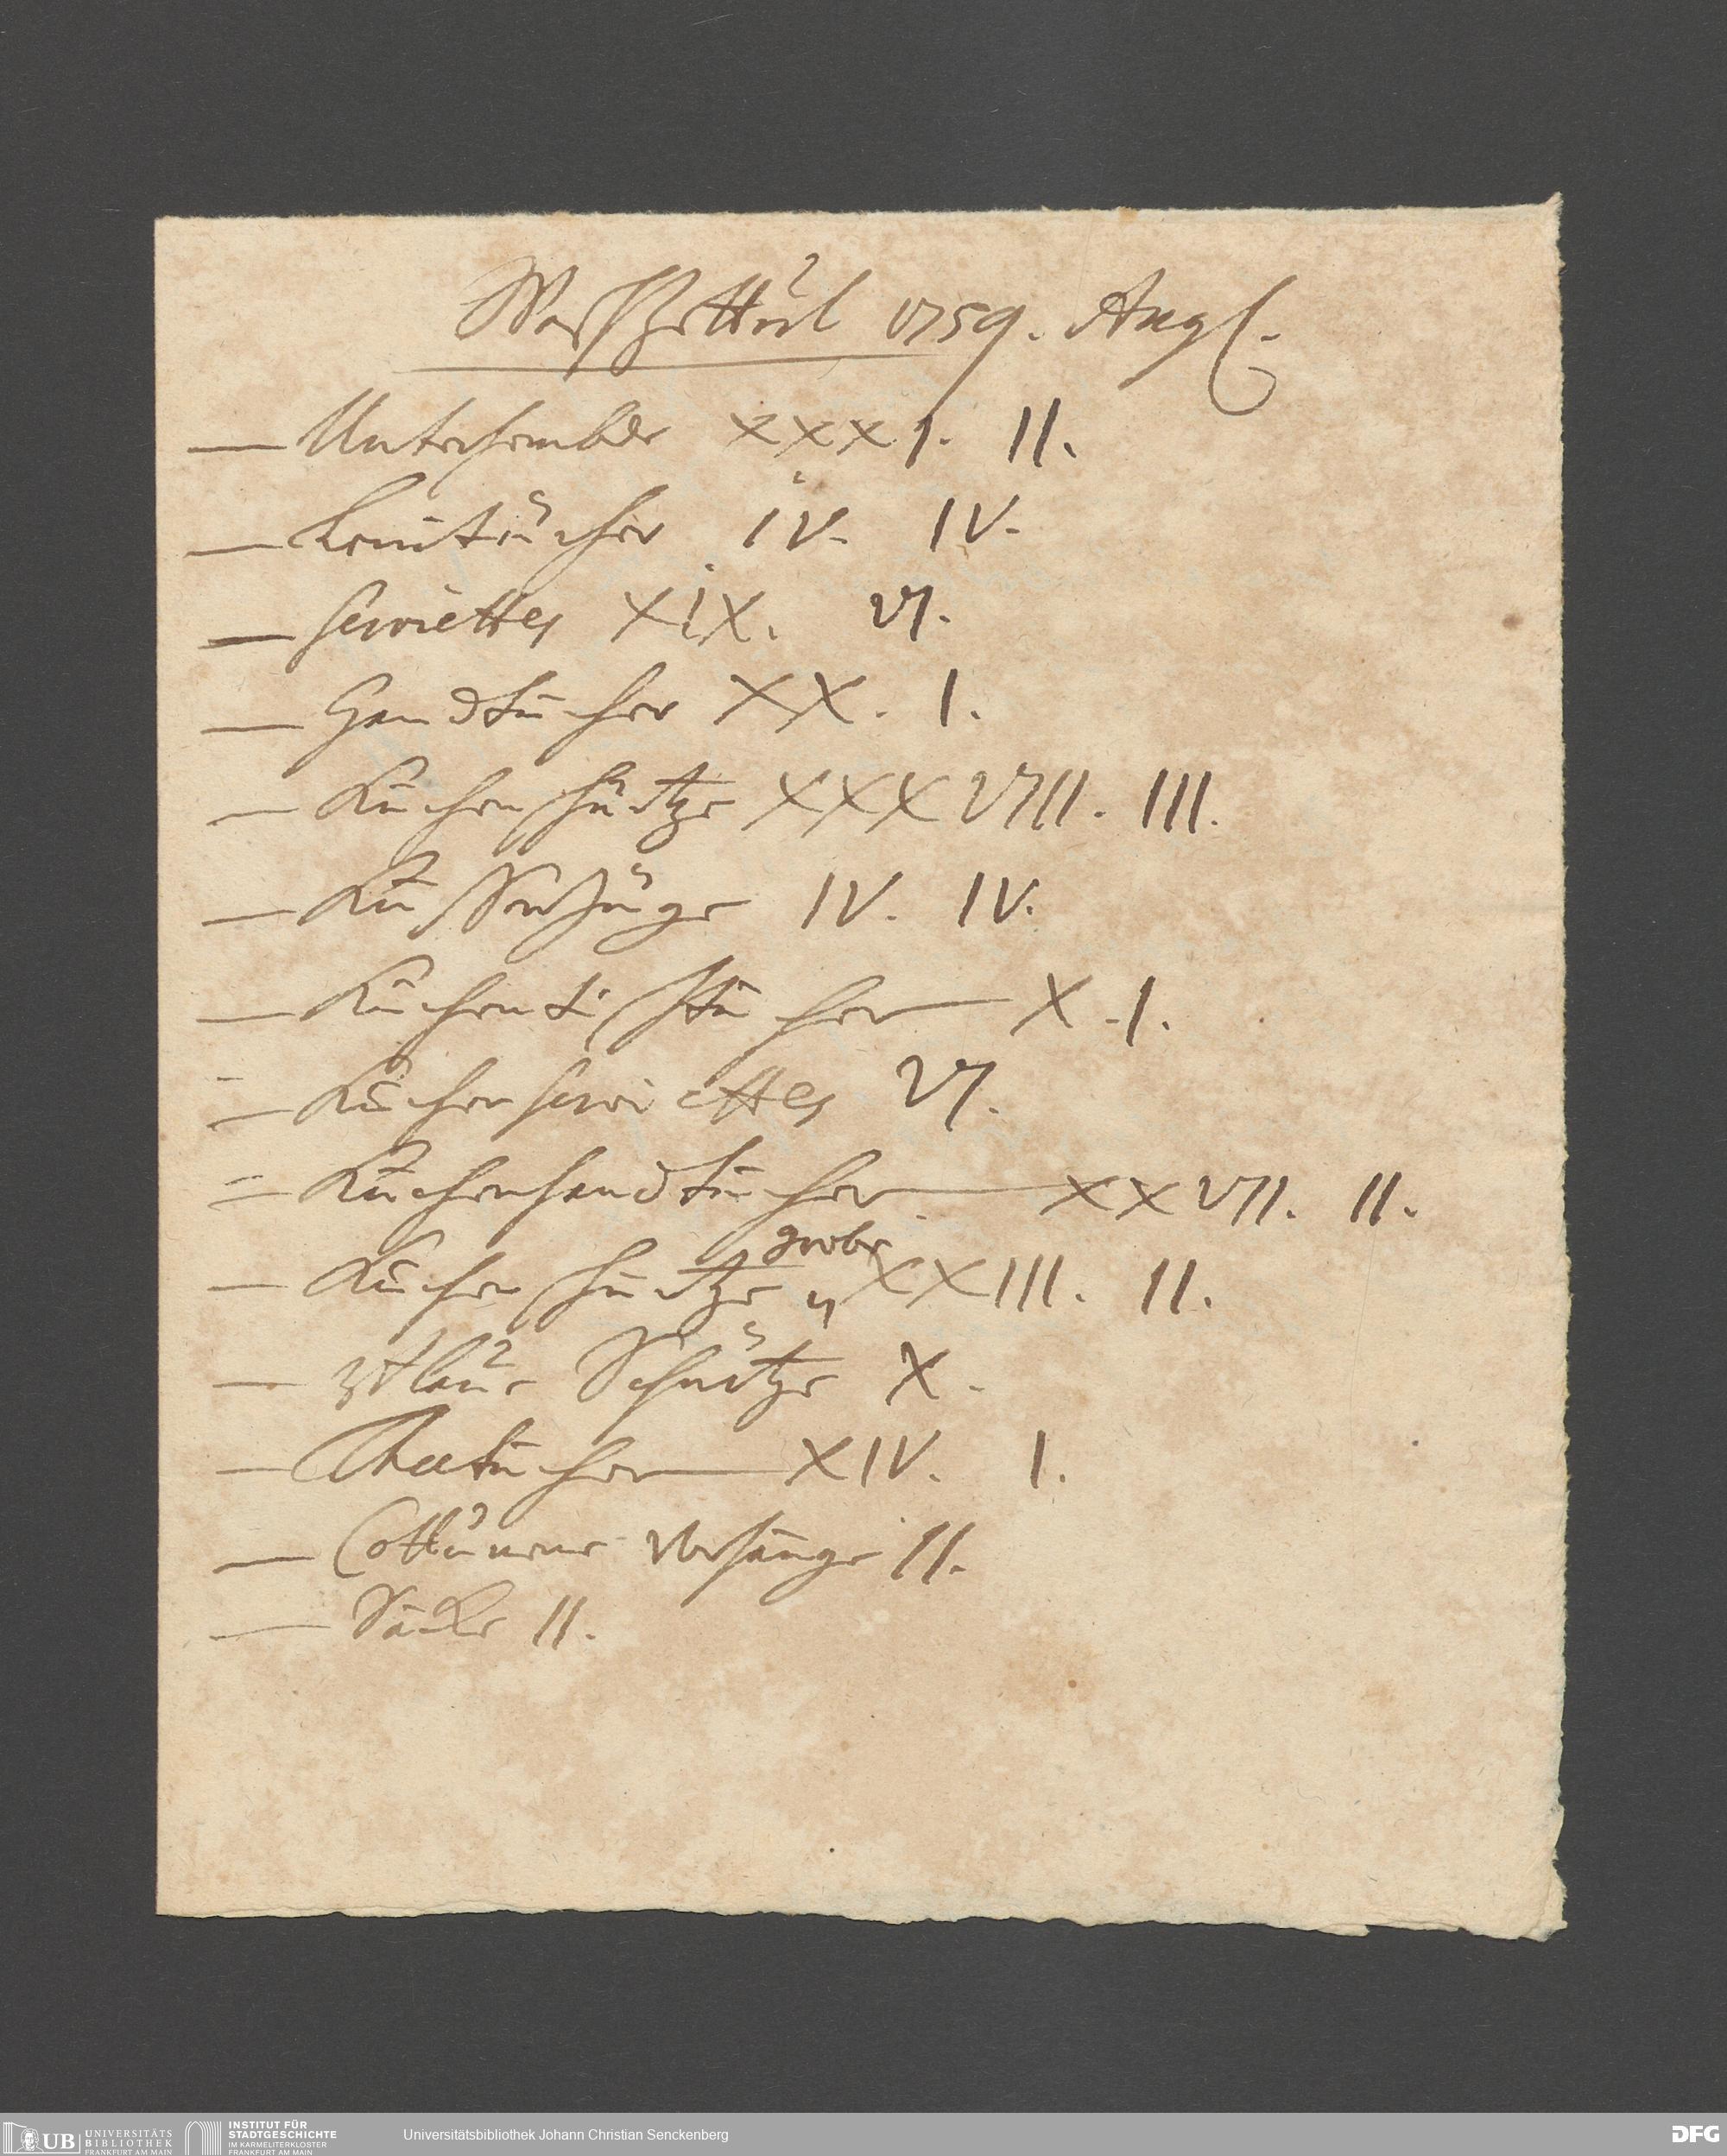 Waschzettul 1759. Aug.
— Unterhembder XXXI. II.
— Leintücher IV. IV.
— Serviettes XIX. VI.
— Handtücher XX. I.
— Küchenschürtze XXXVIII. III.
— Küssenzüge IV. IV.
— Küchentischtücher — X. I.
— Küchenserviettes VI.
— Küchenhandtücher — XXVII. II.
grobe
— Küchenschürtze XXIII. II.
— blaue Schürtze X.
— Theetücher — XIV. I.
— Cottunene Vorhänge II.
— Säcke II.
UB UNIVERSITÄTS BIBLIOTHEK FRANKFURT AM MAIN
INSTITUT FÜR STADTGESCHICHTE IM KARMELITERKLOSTER FRANKFURT AM MAIN
Universitätsbibliothek Johann Christian Senckenberg
DFG